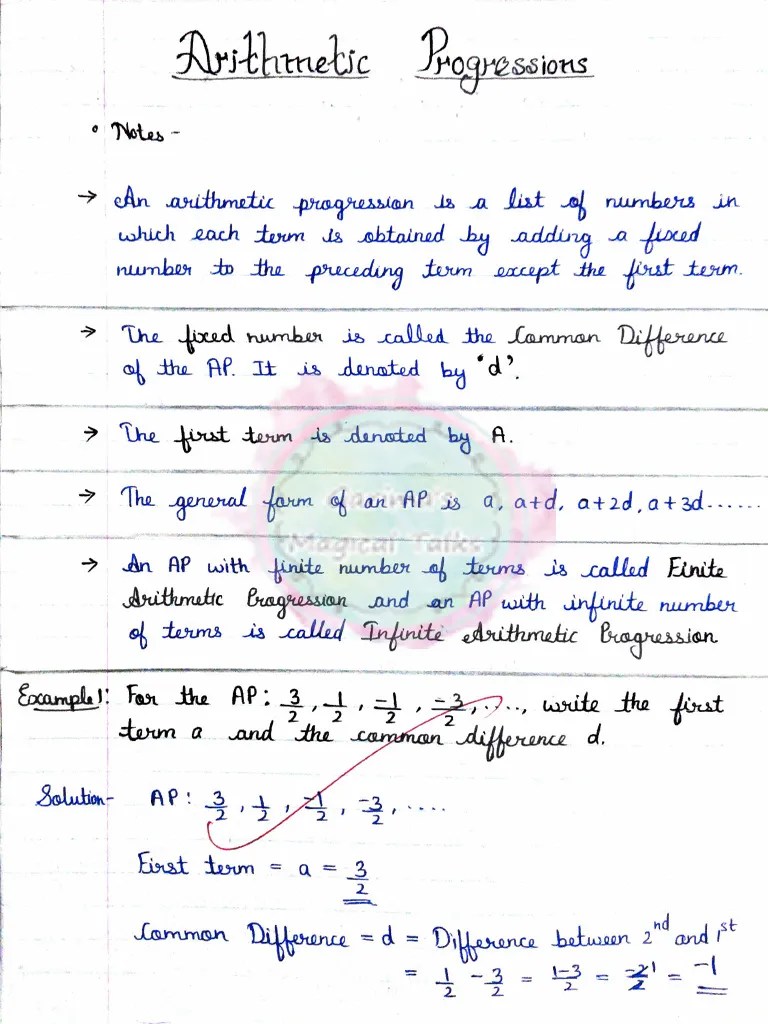 Arithmetic Progressions
• Notes -
→ An arithmetic progression is a list of numbers in
which each term is obtained by adding a fixed
number to the preceding term except the first term.
→ The fixed number is called the Common Difference
of the AP. It is denoted by 'd'.
→ The first term is denoted by A.
→ The general form of an AP is a, a+d, a+2d, a+3d......
Magical Talks
→ An AP with finite number of terms is called Finite
Arithmetic Progression and an AP with infinite number
of terms is called Infinite Arithmetic Progression
Example 1: For the AP: 3/2, 1/2, -1/2, -3/2, ...., write the first
term a and the common difference d.
Solution- AP: 3/2, 1/2, -1/2, -3/2, ....
First term = a = 3/2
Common Difference = d = Difference between 2nd and 1st
= 1/2 - 3/2 = 1-3/2 = -2/2 = -1